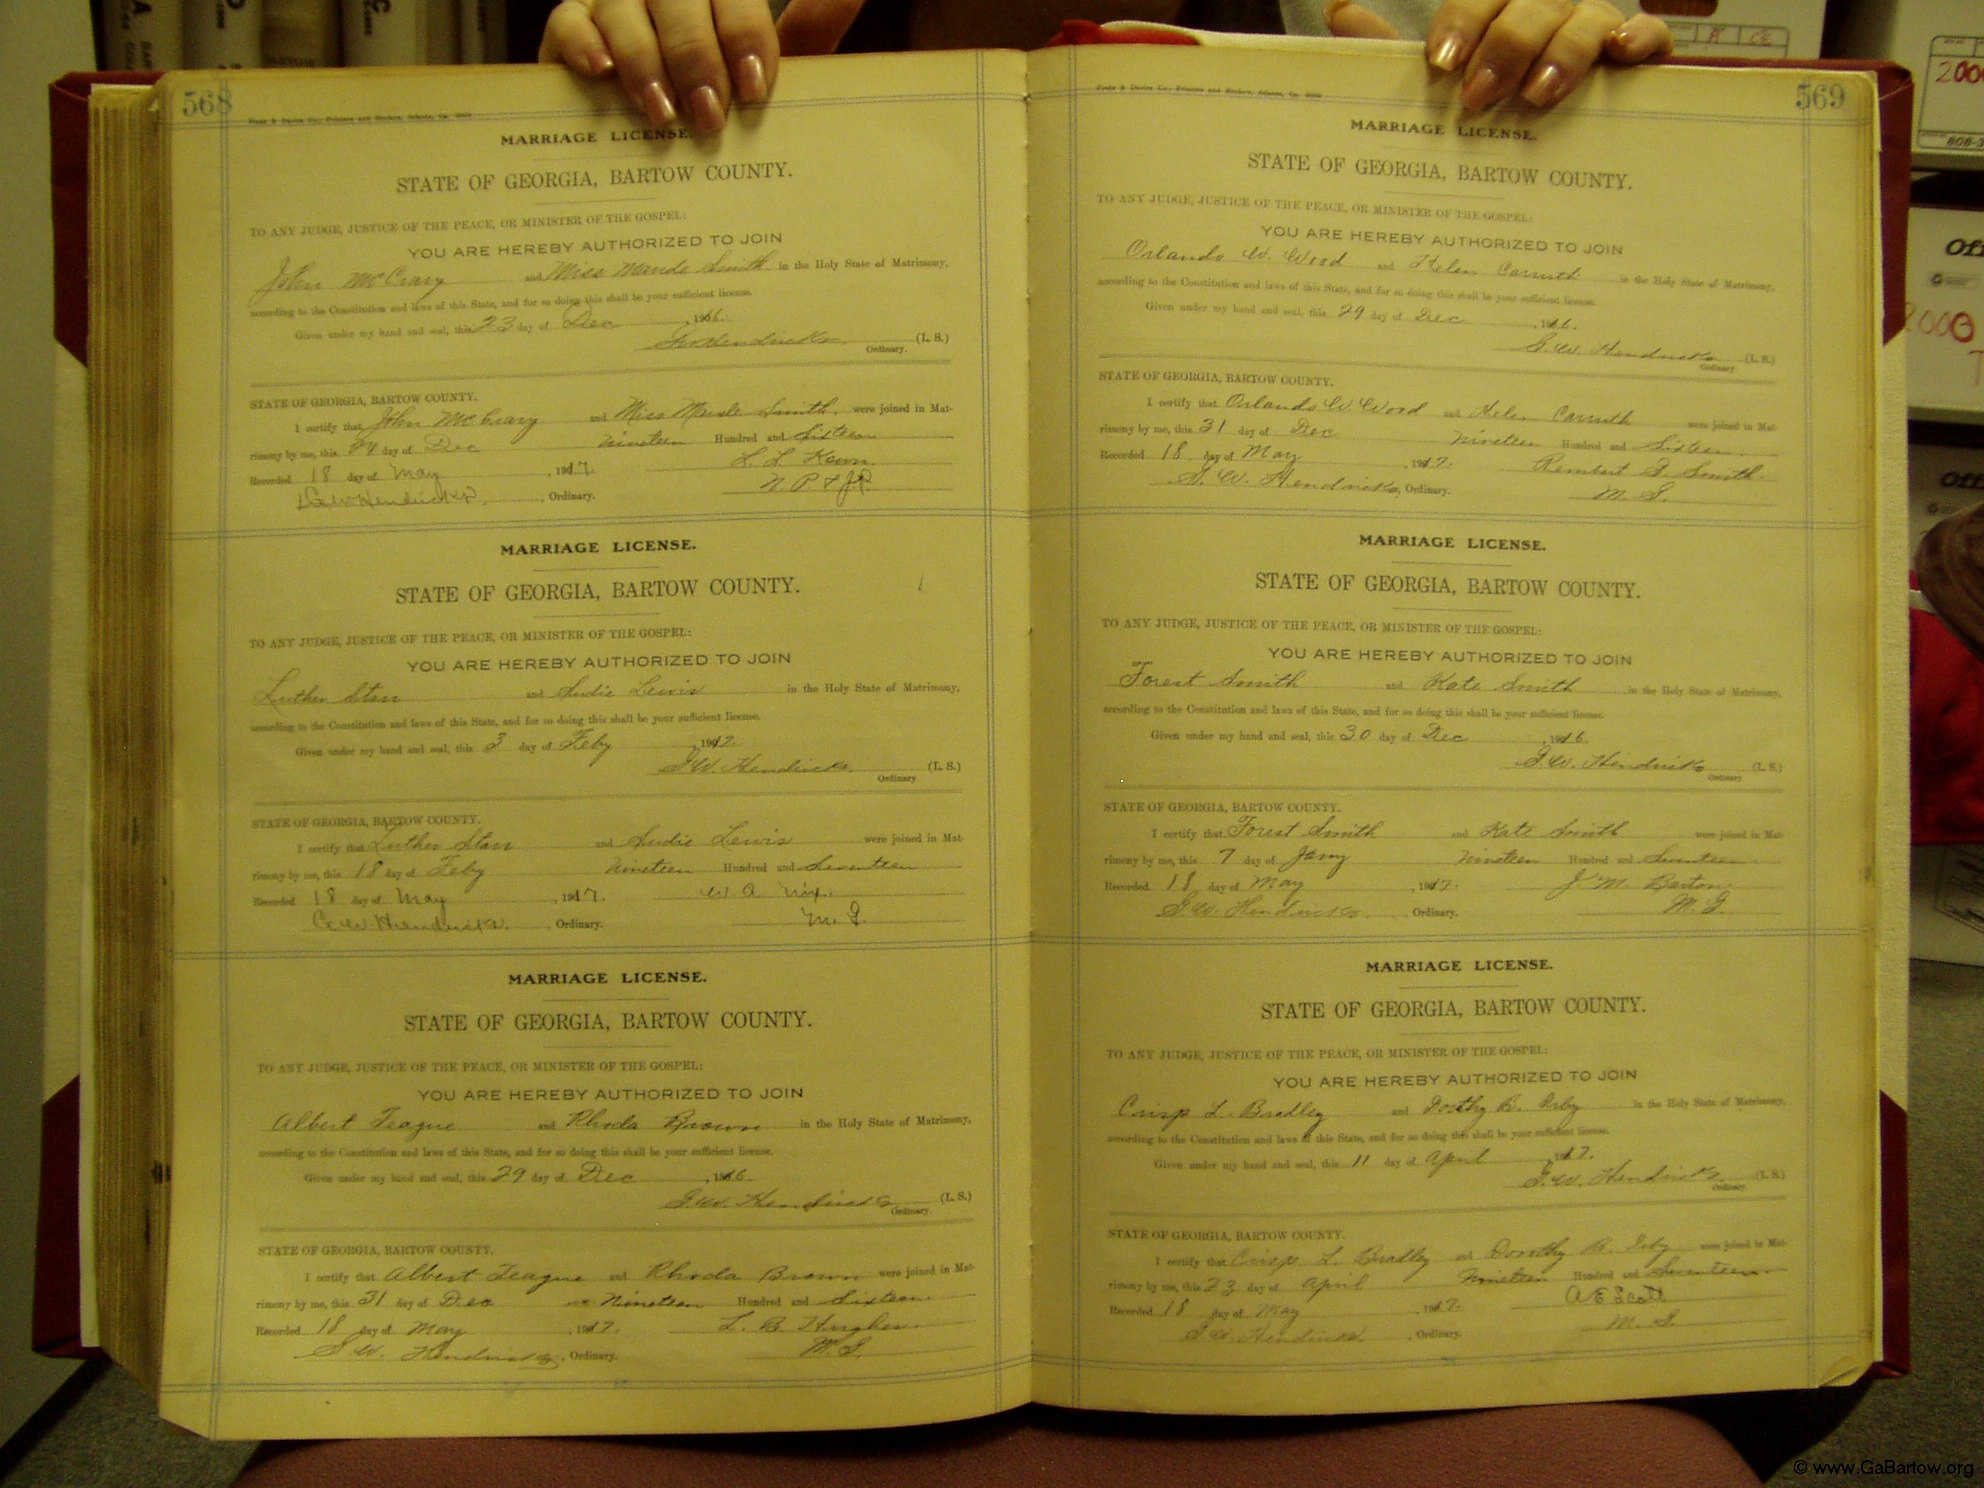 568
MARRIAGE LICENSE.
STATE OF GEORGIA, BARTOW COUNTY.
TO ANY JUDGE, JUSTICE OF THE PEACE, OR MINISTER OF THE GOSPEL:
YOU ARE HEREBY AUTHORIZED TO JOIN
John McCrary and Miss Maude Smith in the Holy State of Matrimony,
according to the Constitution and laws of this State, and for so doing this shall be your sufficient license.
Given under my hand and seal, this 23 day of Dec, 1916.
GW Hendricks (L. S.)
Ordinary.
STATE OF GEORGIA, BARTOW COUNTY.
I certify that John McCrary and Miss Maude Smith were joined in Mat-
rimony by me, this 24 day of Dec Nineteen Hundred and Sixteen
Recorded 18 day of May, 1917. L. L.
GW Hendricks, Ordinary. N. P. & J.P.
MARRIAGE LICENSE.
STATE OF GEORGIA, BARTOW COUNTY.
TO ANY JUDGE, JUSTICE OF THE PEACE, OR MINISTER OF THE GOSPEL:
YOU ARE HEREBY AUTHORIZED TO JOIN
Luther Starr and Sudie Lewis in the Holy State of Matrimony,
according to the Constitution and laws of this State, and for so doing this shall be your sufficient license.
Given under my hand and seal, this 3 day of Feby, 1917.
G.W. Hendricks (L. S.)
Ordinary
STATE OF GEORGIA, BARTOW COUNTY.
I certify that Luther Starr and Sudie Lewis were joined in Mat-
rimony by me, this 18 day of Feby Nineteen Hundred and Seventeen
Recorded 18 day of May, 1917. W. A. Nix.
G.W. Hendricks, Ordinary. M. G.
MARRIAGE LICENSE.
STATE OF GEORGIA, BARTOW COUNTY.
TO ANY JUDGE, JUSTICE OF THE PEACE, OR MINISTER OF THE GOSPEL:
YOU ARE HEREBY AUTHORIZED TO JOIN
Albert Teague and Rhoda Brown in the Holy State of Matrimony,
according to the Constitution and laws of this State, and for so doing this shall be your sufficient license.
Given under my hand and seal, this 29 day of Dec, 1916.
G.W. Hendricks (L. S.)
Ordinary.
STATE OF GEORGIA, BARTOW COUNTY.
I certify that Albert Teague and Rhoda Brown were joined in Mat-
rimony by me, this 31 day of Dec Nineteen Hundred and Sixteen.
Recorded 18 day of May, 1917. L. B. Hughes.
G.W. Hendricks, Ordinary. M. G.
569
MARRIAGE LICENSE.
STATE OF GEORGIA, BARTOW COUNTY.
TO ANY JUDGE, JUSTICE OF THE PEACE, OR MINISTER OF THE GOSPEL:
YOU ARE HEREBY AUTHORIZED TO JOIN
Orlando W. Wood and Helen Carruth in the Holy State of Matrimony,
according to the Constitution and laws of this State, and for so doing this shall be your sufficient license.
Given under my hand and seal, this 29 day of Dec, 1916.
G.W. Hendricks (L. S.)
Ordinary
STATE OF GEORGIA, BARTOW COUNTY.
I certify that Orlando W. Wood and Helen Carruth were joined in Mat-
rimony by me, this 31 day of Dec Nineteen Hundred and Sixteen.
Recorded 18 day of May, 1917. Rembert G. Smith.
G. W. Hendricks, Ordinary. M. G.
MARRIAGE LICENSE.
STATE OF GEORGIA, BARTOW COUNTY.
TO ANY JUDGE, JUSTICE OF THE PEACE, OR MINISTER OF THE GOSPEL:
YOU ARE HEREBY AUTHORIZED TO JOIN
Forest Smith and Kate Smith in the Holy State of Matrimony,
according to the Constitution and laws of this State, and for so doing this shall be your sufficient license.
Given under my hand and seal, this 30 day of Dec, 1916.
G.W. Hendricks (L. S.)
Ordinary
STATE OF GEORGIA, BARTOW COUNTY.
I certify that Forest Smith and Kate Smith were joined in Mat-
rimony by me, this 7 day of Jany Nineteen Hundred and Seventeen.
Recorded 18 day of May, 1917. J. M. Barton
G.W. Hendricks, Ordinary. M. G.
MARRIAGE LICENSE.
STATE OF GEORGIA, BARTOW COUNTY.
TO ANY JUDGE, JUSTICE OF THE PEACE, OR MINISTER OF THE GOSPEL:
YOU ARE HEREBY AUTHORIZED TO JOIN
Crisp L. Bradley and Dorthy B. Irby in the Holy State of Matrimony,
according to the Constitution and laws of this State, and for so doing this shall be your sufficient license.
Given under my hand and seal, this 11 day of April, 1917.
G.W. Hendricks (L. S.)
Ordinary
STATE OF GEORGIA, BARTOW COUNTY.
I certify that Crisp L. Bradley and Dorothy B. Irby were joined in Mat-
rimony by me, this 23 day of April Nineteen Hundred and Seventeen
Recorded 18 day of May, 1917. A E Scott
G.W. Hendricks, Ordinary. M. G.
© www.GaBartow.org